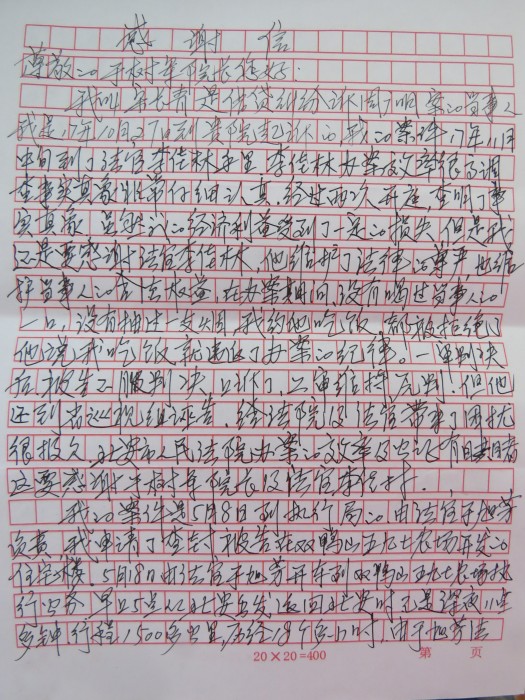 感谢信
尊敬的于树军院长您好:
我叫 长青是借贷纠纷 案的当事人
我是17年10月27日到贵院起诉的,我的案件17年11月
中旬到了法官李佳林手里,李佳林办案效率很高,调
查事实真象非常仔细认真,经过两次开庭,查明了事
实真象,虽然我的经济利益受到了一定的损失,但是我
还是要感谢法官李佳林,他维护了法律的尊严,也维
护当事人的合法权益,在办案期间,没有喝过当事人的
一口,没有抽过一支烟,我约他吃饭,都被拒绝了
他说我吃饭就违反了办案的纪律。一审判决
后,被告不服判决,上诉了,二审维持原判,但他
还到省巡视组诬告,给法院及法官带来了困扰
很抱欠,北安市人民法院办案的效率及公证有目共睹
这要感谢于树军院长及法官李佳林.
我的案件是5月8日到执行局的,由法官于旭芳
负责,我申请了查封被告在双鸭山五九七农场开发的
住宅楼,5月18日由法官于旭芳开车到双鸭山五九七农场执
行公务,早上5点从北安出发返回北安时已是深夜11点
多钟行程1500多公里,历经18个多小时,由于旭芳法
20×20=400 第 页